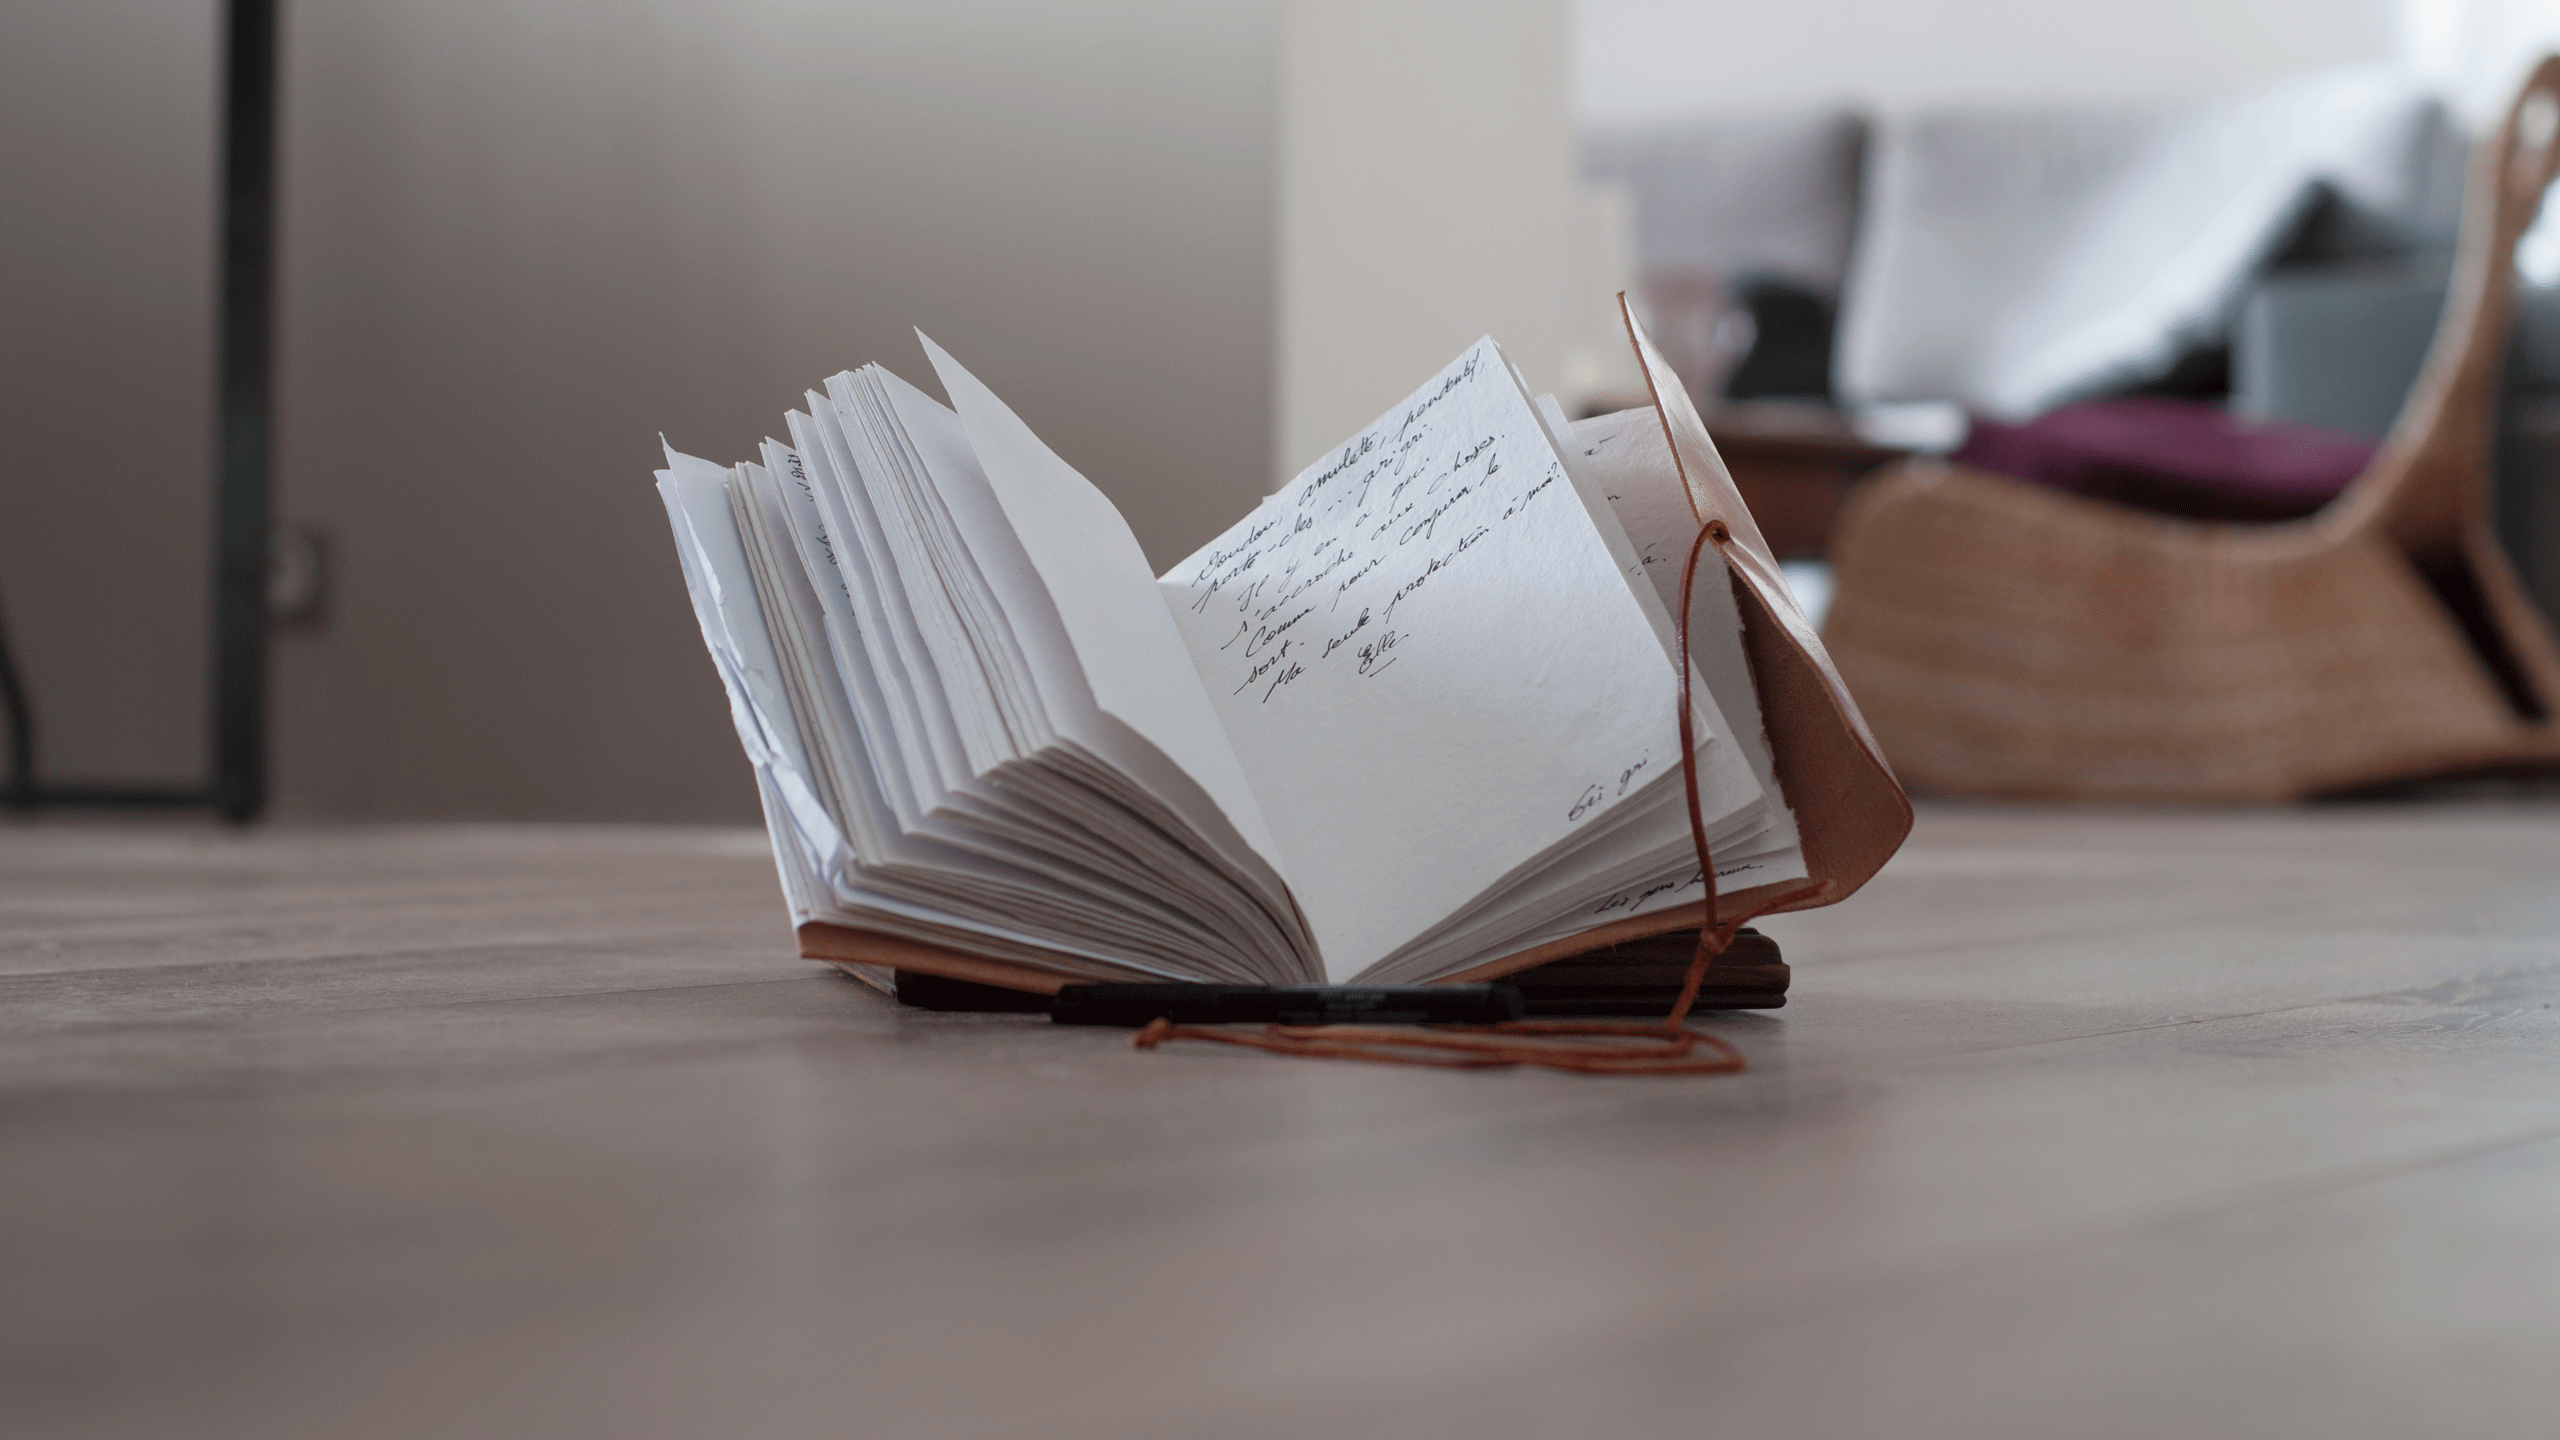 Doudou, amulette, pendentif,
porte-clés... gri gri.
Il y en a qui
s'accroche aux choses.
Comme pour conjurer le
sort.
Ma seule protection à moi?
Elle
Gri gri
Les gens heureux.